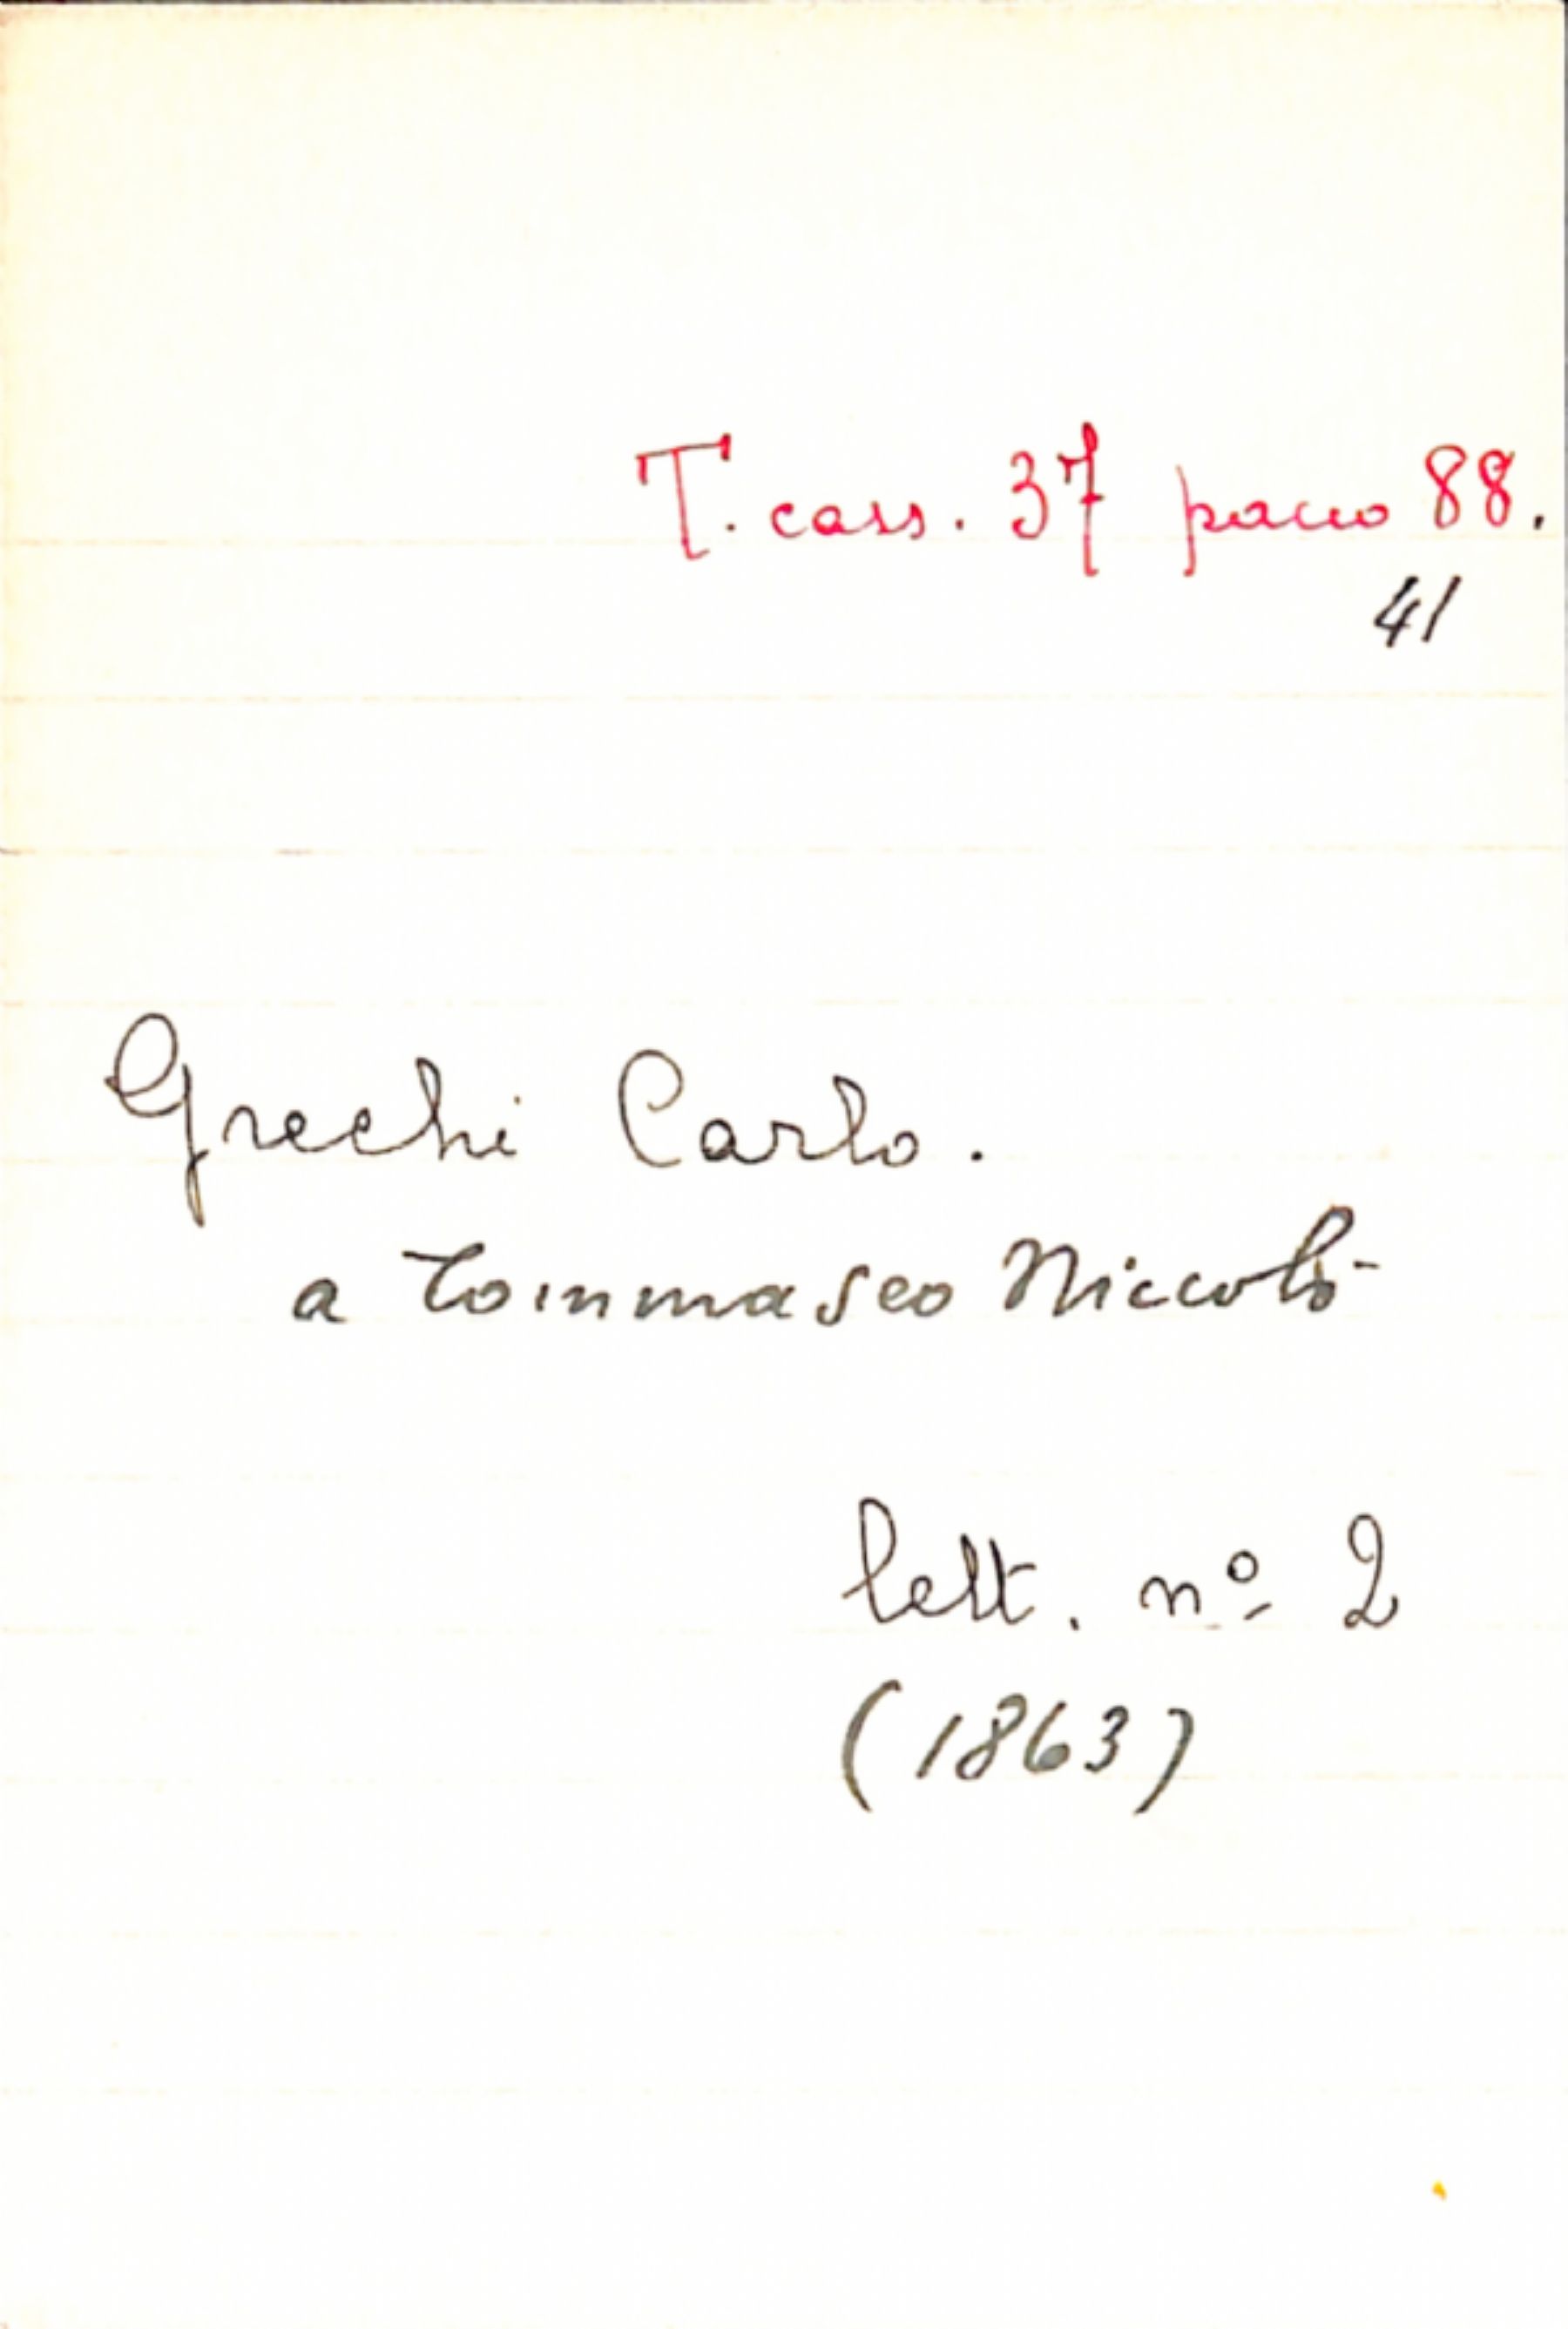 T. cass. 37 pacco 88.
41
Grechi Carlo.
a Tommaseo Niccolò
lett. nº 2
(1863)